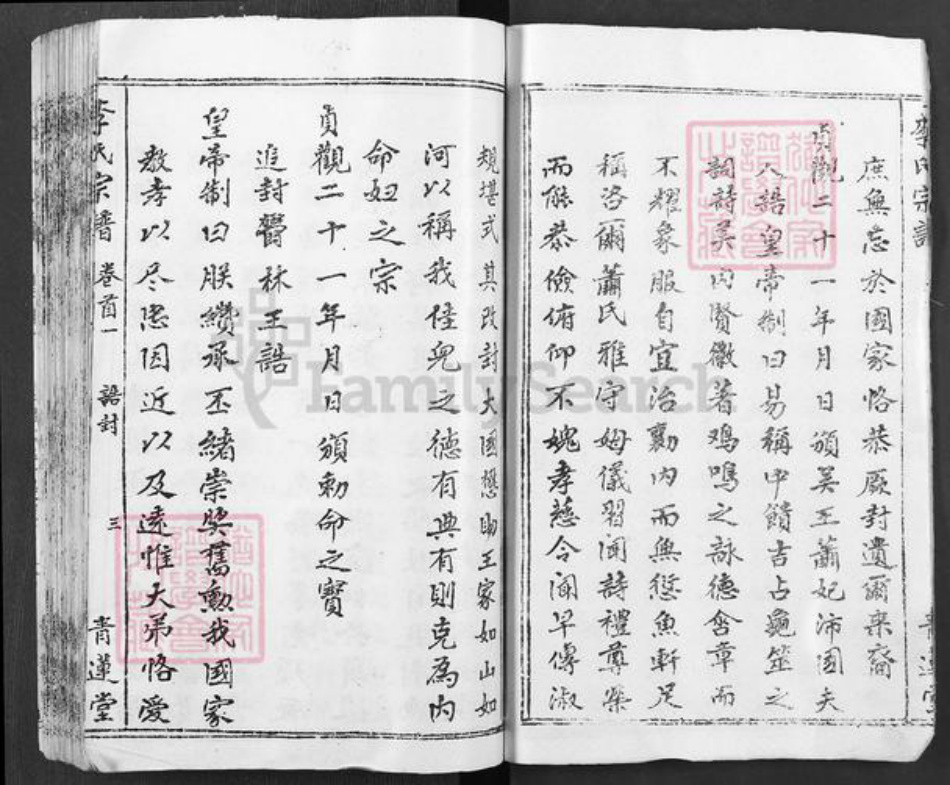 李氏宗譜
庶無忘於國家恪恭厥封遺爾來裔
貞觀二十一年月日頒吳王蕭妃沛國夫
人誥皇帝制曰易稱中饋吉占龜筮之
詞詩美內賢徽著鸡鳴之詠德含章而
不耀象服自宜治勷內而無愆魚軒足
稱洛爾蕭氏雅守姆儀習闻詩禮尊榮
而能恭儉俯仰不媿孝慈令闻早傳淑
規堪式其改封大國懋助王家如山如
河以稱我侄兒之德有典有則克爲内
命妇之宗
貞觀二十一年月日頒勅命之寳
追封鬱林王誥
皇帝制曰朕纘承丕緒崇奬舊勳我國家
敎孝以尽忠因近以及遠惟大弟恪愛
李氏宗譜 卷首一 誥封 三 青蓮堂
FamilySearch